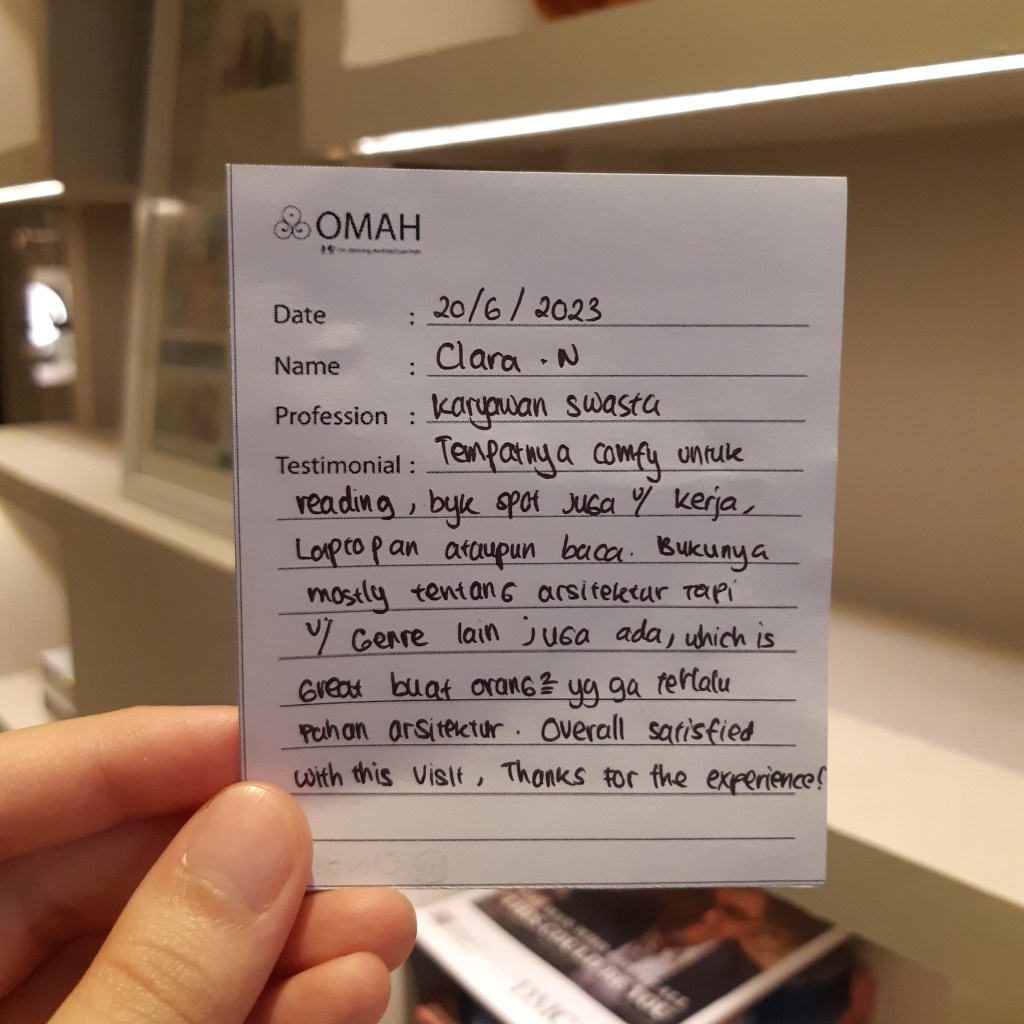 OMAH
Date : 20/6/2023
Name : Clara . N
Profession : Karyawan swasta
Testimonial : Tempatnya comfy untuk
reading, byk spot juga u/ kerja,
Laptopan ataupun baca. Bukunya
mostly tentang arsitektur tapi
u/ Genre lain juga ada, which is
Great buat orang2 yg ga terlalu
pahan arsitektur. Overall satisfied
with this visit, Thanks for the experience!
YOU